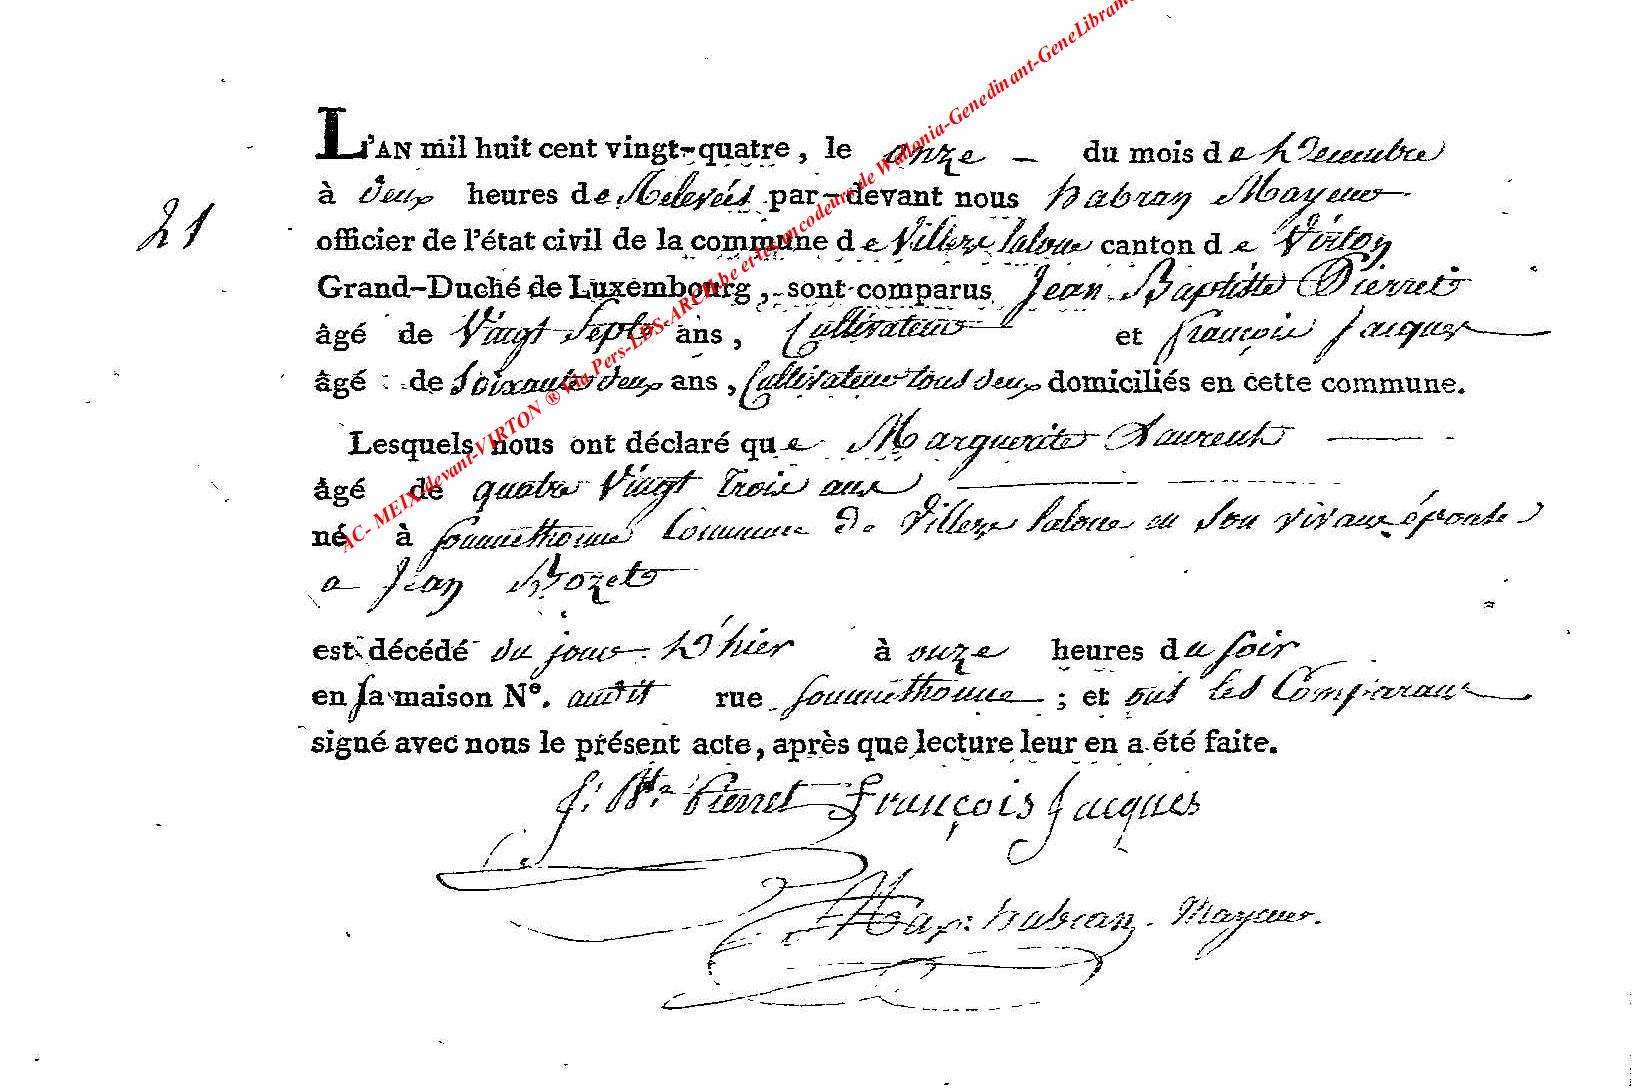 L'AN mil huit cent vingt-quatre, le onze du mois de Décembre
à deux heures de Relevées par-devant nous habran Mayeur
21
officier de l'état civil de la commune de Villers la loue canton de Virton
Grand-Duché de Luxembourg, sont comparus Jean Baptiste Pierret
âgé de Vingt Sept ans, Cultivateur et françois Jacques
âgé de Soixante deux ans, Cultivateur tous deux domiciliés en cette commune.
Lesquels nous ont déclaré que Marguerite Laurent
âgé de quatre Vingt trois ans
né à sommethonne Commune de Villers laloue en son vivant épouse
a Jean Rozet
est décédé du jour D'hier à onze heures du soir
en sa maison N°. audit rue sommethonne ; et ont les Comparans
signé avec nous le présent acte, après que lecture leur en a été faite.
J. Bte Pierret François Jacques
habran Mayeur.
AC- MEIX-devant-VIRTON ® Via Pers-LDS-ARCH.be et les encodeurs de Wallonia-Genedinant-GeneLibram